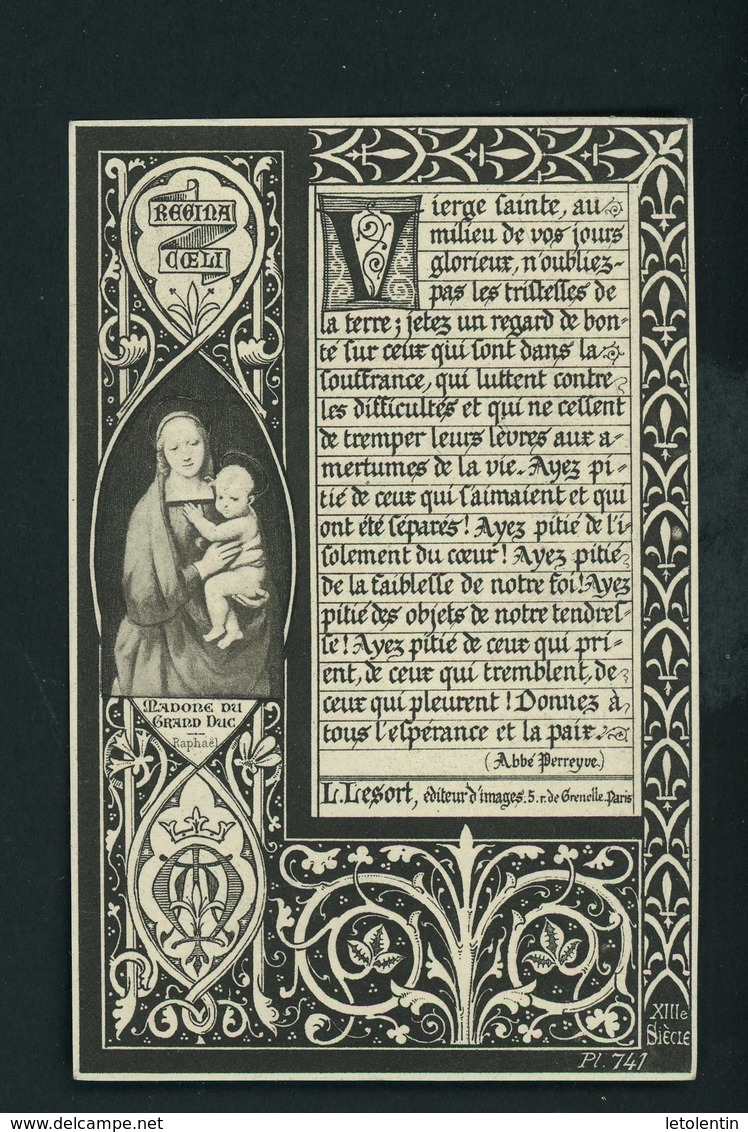 REGINA
CŒLI
MADONE DU
GRAND DUC
Raphaël
Vierge sainte, au
milieu de vos jours
glorieux, n'oubliez-
pas les tristesses de
la terre; jetez un regard de bon-
té sur ceux qui sont dans la
souffrance, qui luttent contre
les difficultés et qui ne cessent
de tremper leurs lèvres aux a-
mertumes de la vie. Ayez pi-
tié de ceux qui s'aimaient et qui
ont été séparés! Ayez pitié de l'i-
solement du cœur! Ayez pitié
de la faiblesse de notre foi! Ayez
pitié des objets de notre tendres-
se! Ayez pitié de ceux qui pri-
ent, de ceux qui tremblent, de
ceux qui pleurent! Donnez à
tous l'espérance et la paix.
(Abbé Perreyve.)
L. Lesort, éditeur d'images. 5. r. de Grenelle. Paris
XIIIe
SIÈCLE
Pl. 741
www.delcampe.net
letolentin